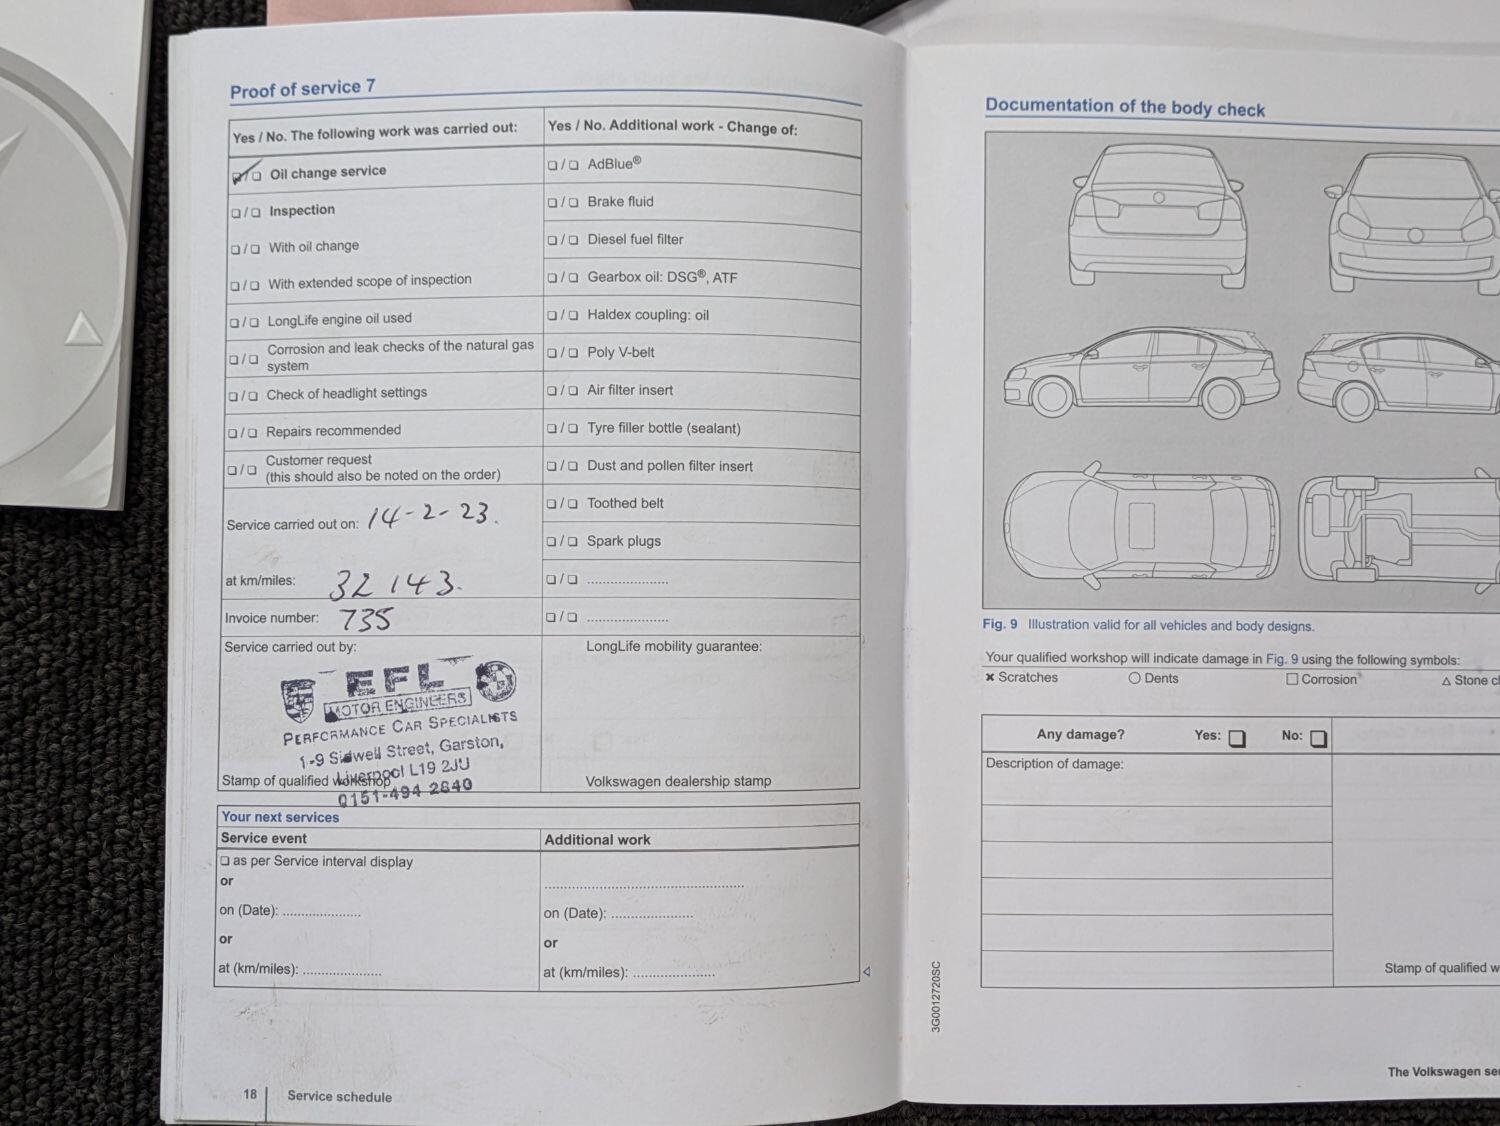 Proof of service 7
Yes / No. The following work was carried out:
☑/❏ Oil change service
❏/❏ Inspection
❏/❏ With oil change
❏/❏ With extended scope of inspection
❏/❏ LongLife engine oil used
❏/❏ Corrosion and leak checks of the natural gas
system
❏/❏ Check of headlight settings
❏/❏ Repairs recommended
❏/❏ Customer request
(this should also be noted on the order)
Service carried out on: 14-2-23.
at km/miles: 32 143.
Invoice number: 735
Service carried out by:
EFL
MOTOR ENGINEERS
PERFORMANCE CAR SPECIALISTS
1-9 Sidwell Street, Garston,
Liverpool L19 2JU
0151-494 2640
Stamp of qualified workshop
Yes / No. Additional work - Change of:
❏/❏ AdBlue®
❏/❏ Brake fluid
❏/❏ Diesel fuel filter
❏/❏ Gearbox oil: DSG®, ATF
❏/❏ Haldex coupling: oil
❏/❏ Poly V-belt
❏/❏ Air filter insert
❏/❏ Tyre filler bottle (sealant)
❏/❏ Dust and pollen filter insert
❏/❏ Toothed belt
❏/❏ Spark plugs
❏/❏ ....................
❏/❏ ....................
LongLife mobility guarantee:
Volkswagen dealership stamp
Your next services
Service event
❏ as per Service interval display
or
on (Date): ....................
or
at (km/miles): ....................
Additional work
..................................................
on (Date): ....................
or
at (km/miles): ....................
18 Service schedule
Documentation of the body check
Fig. 9 Illustration valid for all vehicles and body designs.
Your qualified workshop will indicate damage in Fig. 9 using the following symbols:
✖ Scratches ○ Dents □ Corrosion △ Stone
Any damage? Yes: ❏ No: ❏
Description of damage:
Stamp of qualified
3G0012720SC
The Volkswagen